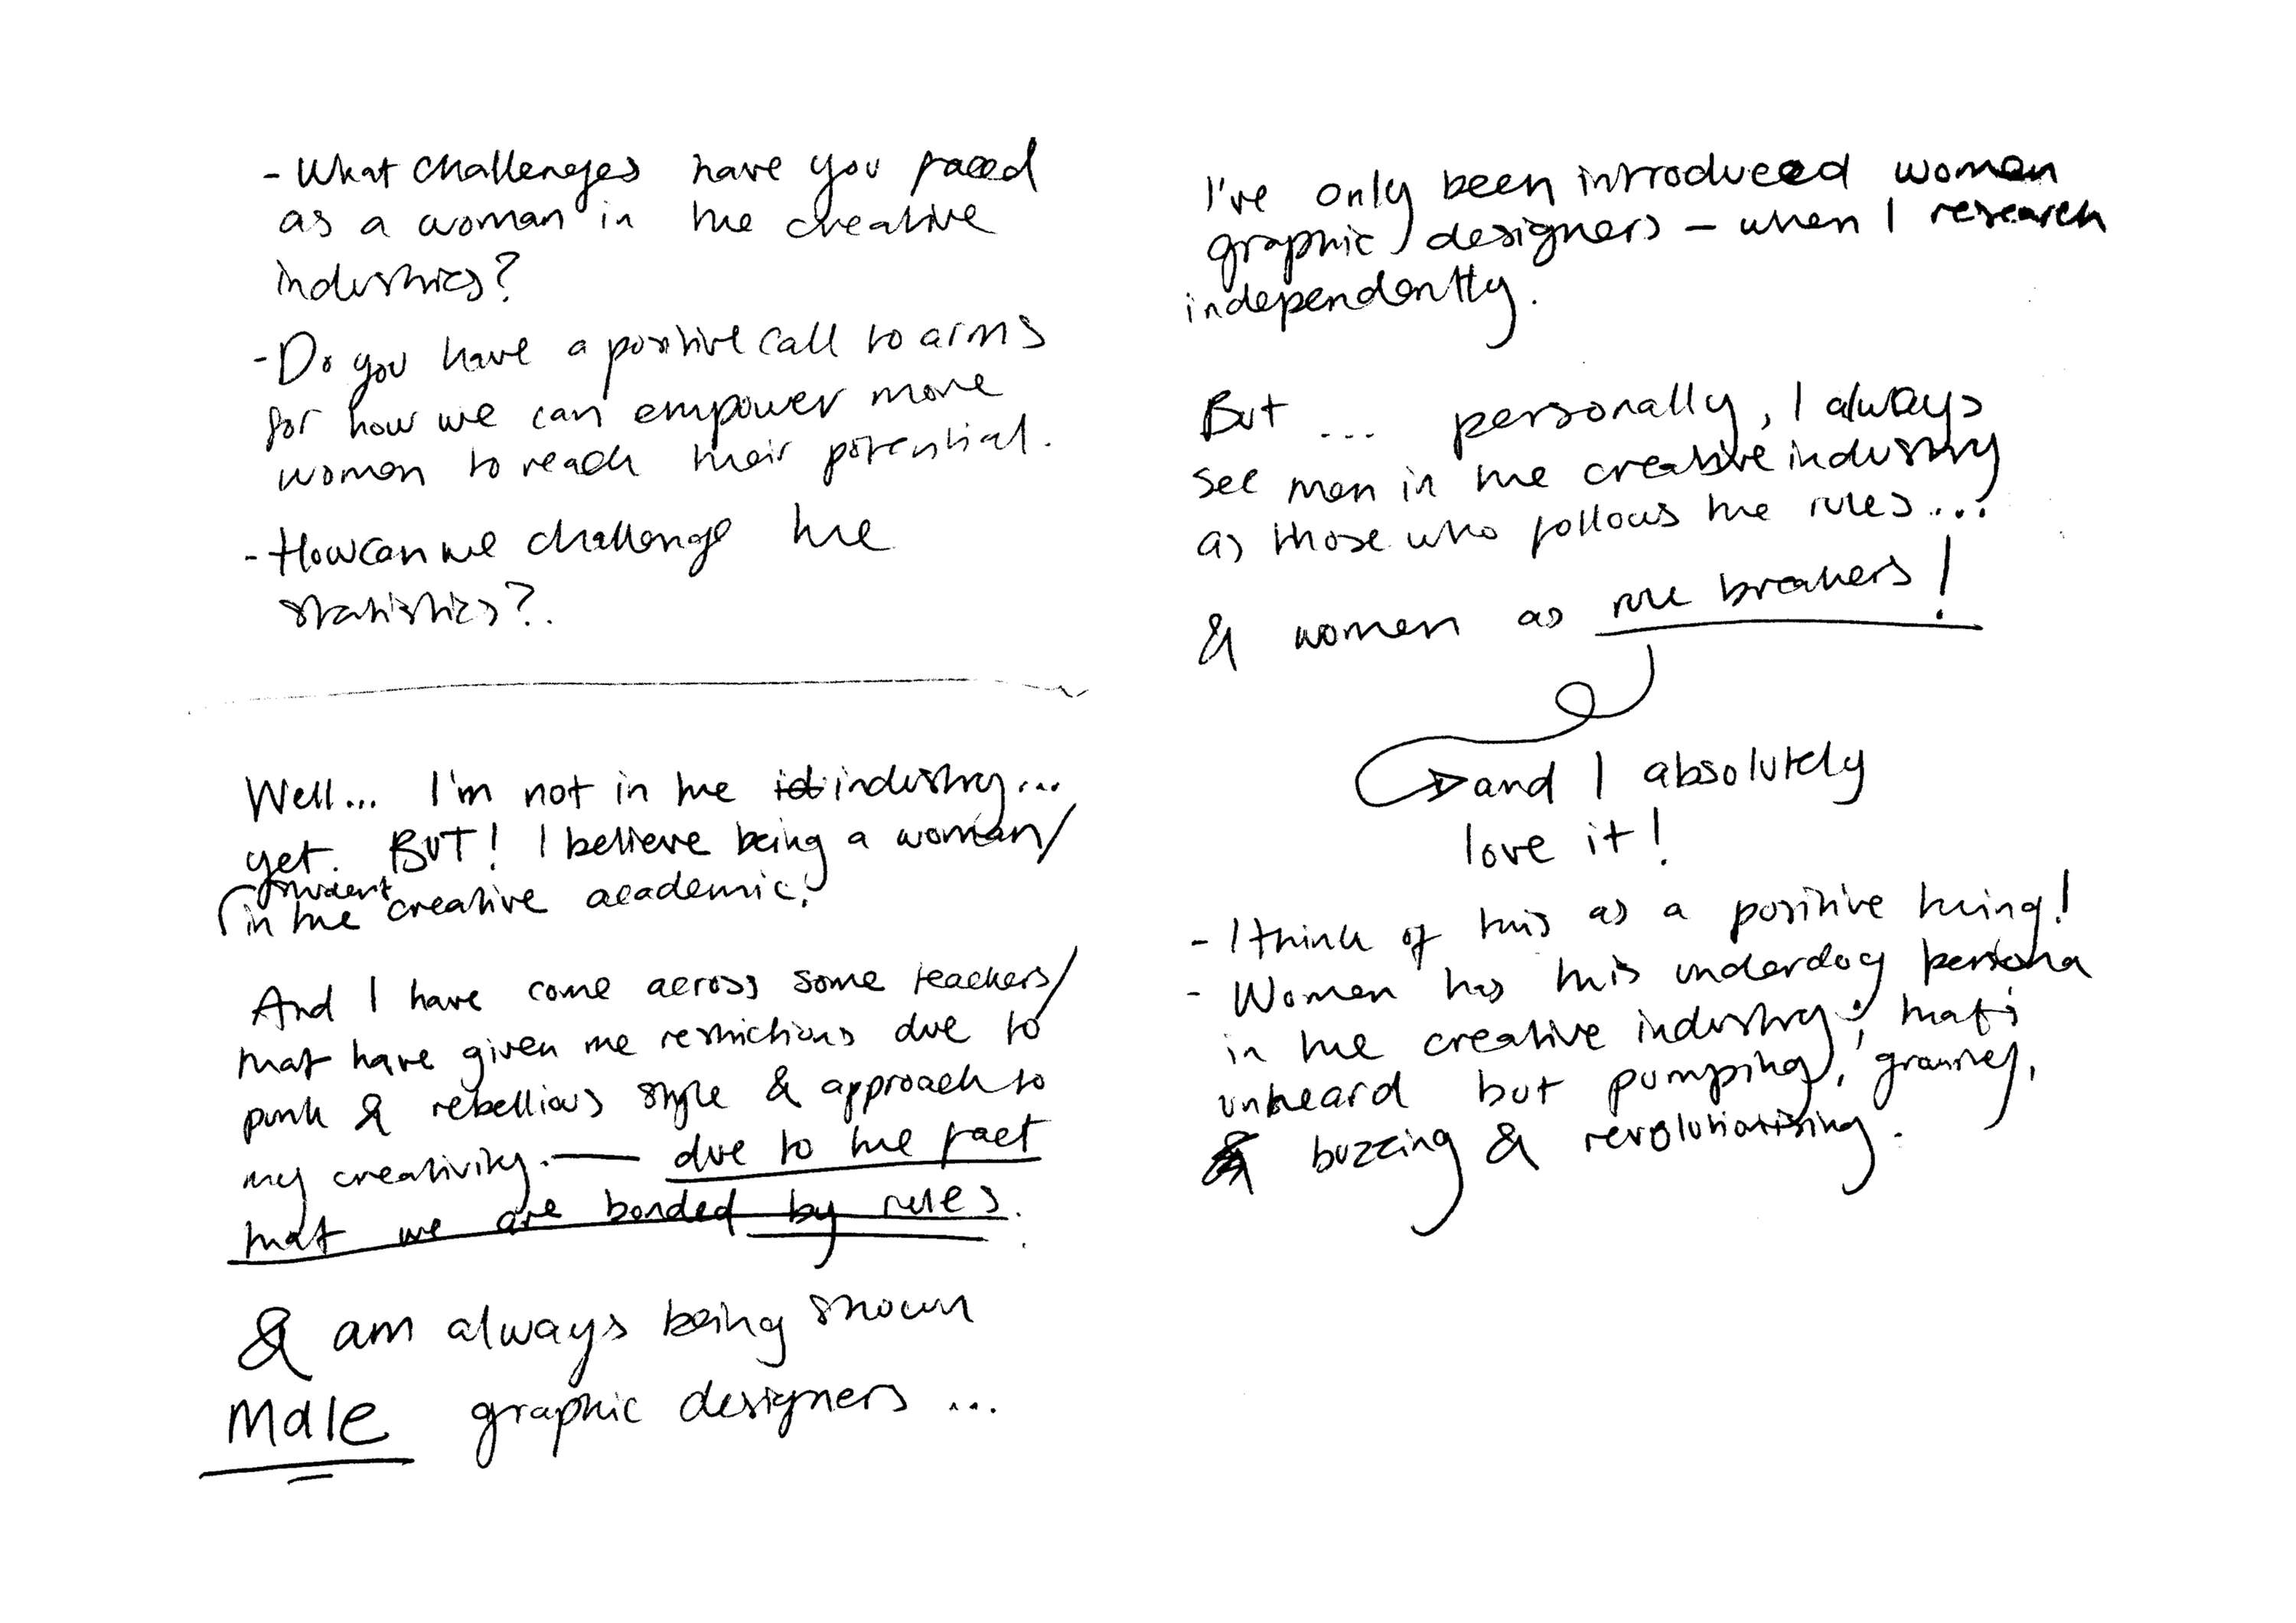 - What challenges have you faced
as a woman in the creative
industries?
- Do you have a positive call to arms
for how we can empower more
women to reach their potential.
- How can we challenge the
statistics?.
Well... I'm not in the industry...
yet. BUT! I believe being a woman/
student
in the creative academic,
And I have come across some teachers/
that have given me restrictions due to
punk & rebellious style & approach to
my creativity. — due to the fact
that we are bonded by rules.
& am always being shown
Male graphic designers ...
I've only been introduced women
graphic designers – when I research
independently.
But ... personally, I always
see men in the creative industry
as those who follows the rules...
& women as rule breakers!
and I absolutely
love it!
- I think of this as a positive thing!
- Women has this underdog persona
in the creative industry; that's
unheard but pumping,
buzzing & revolutionising.